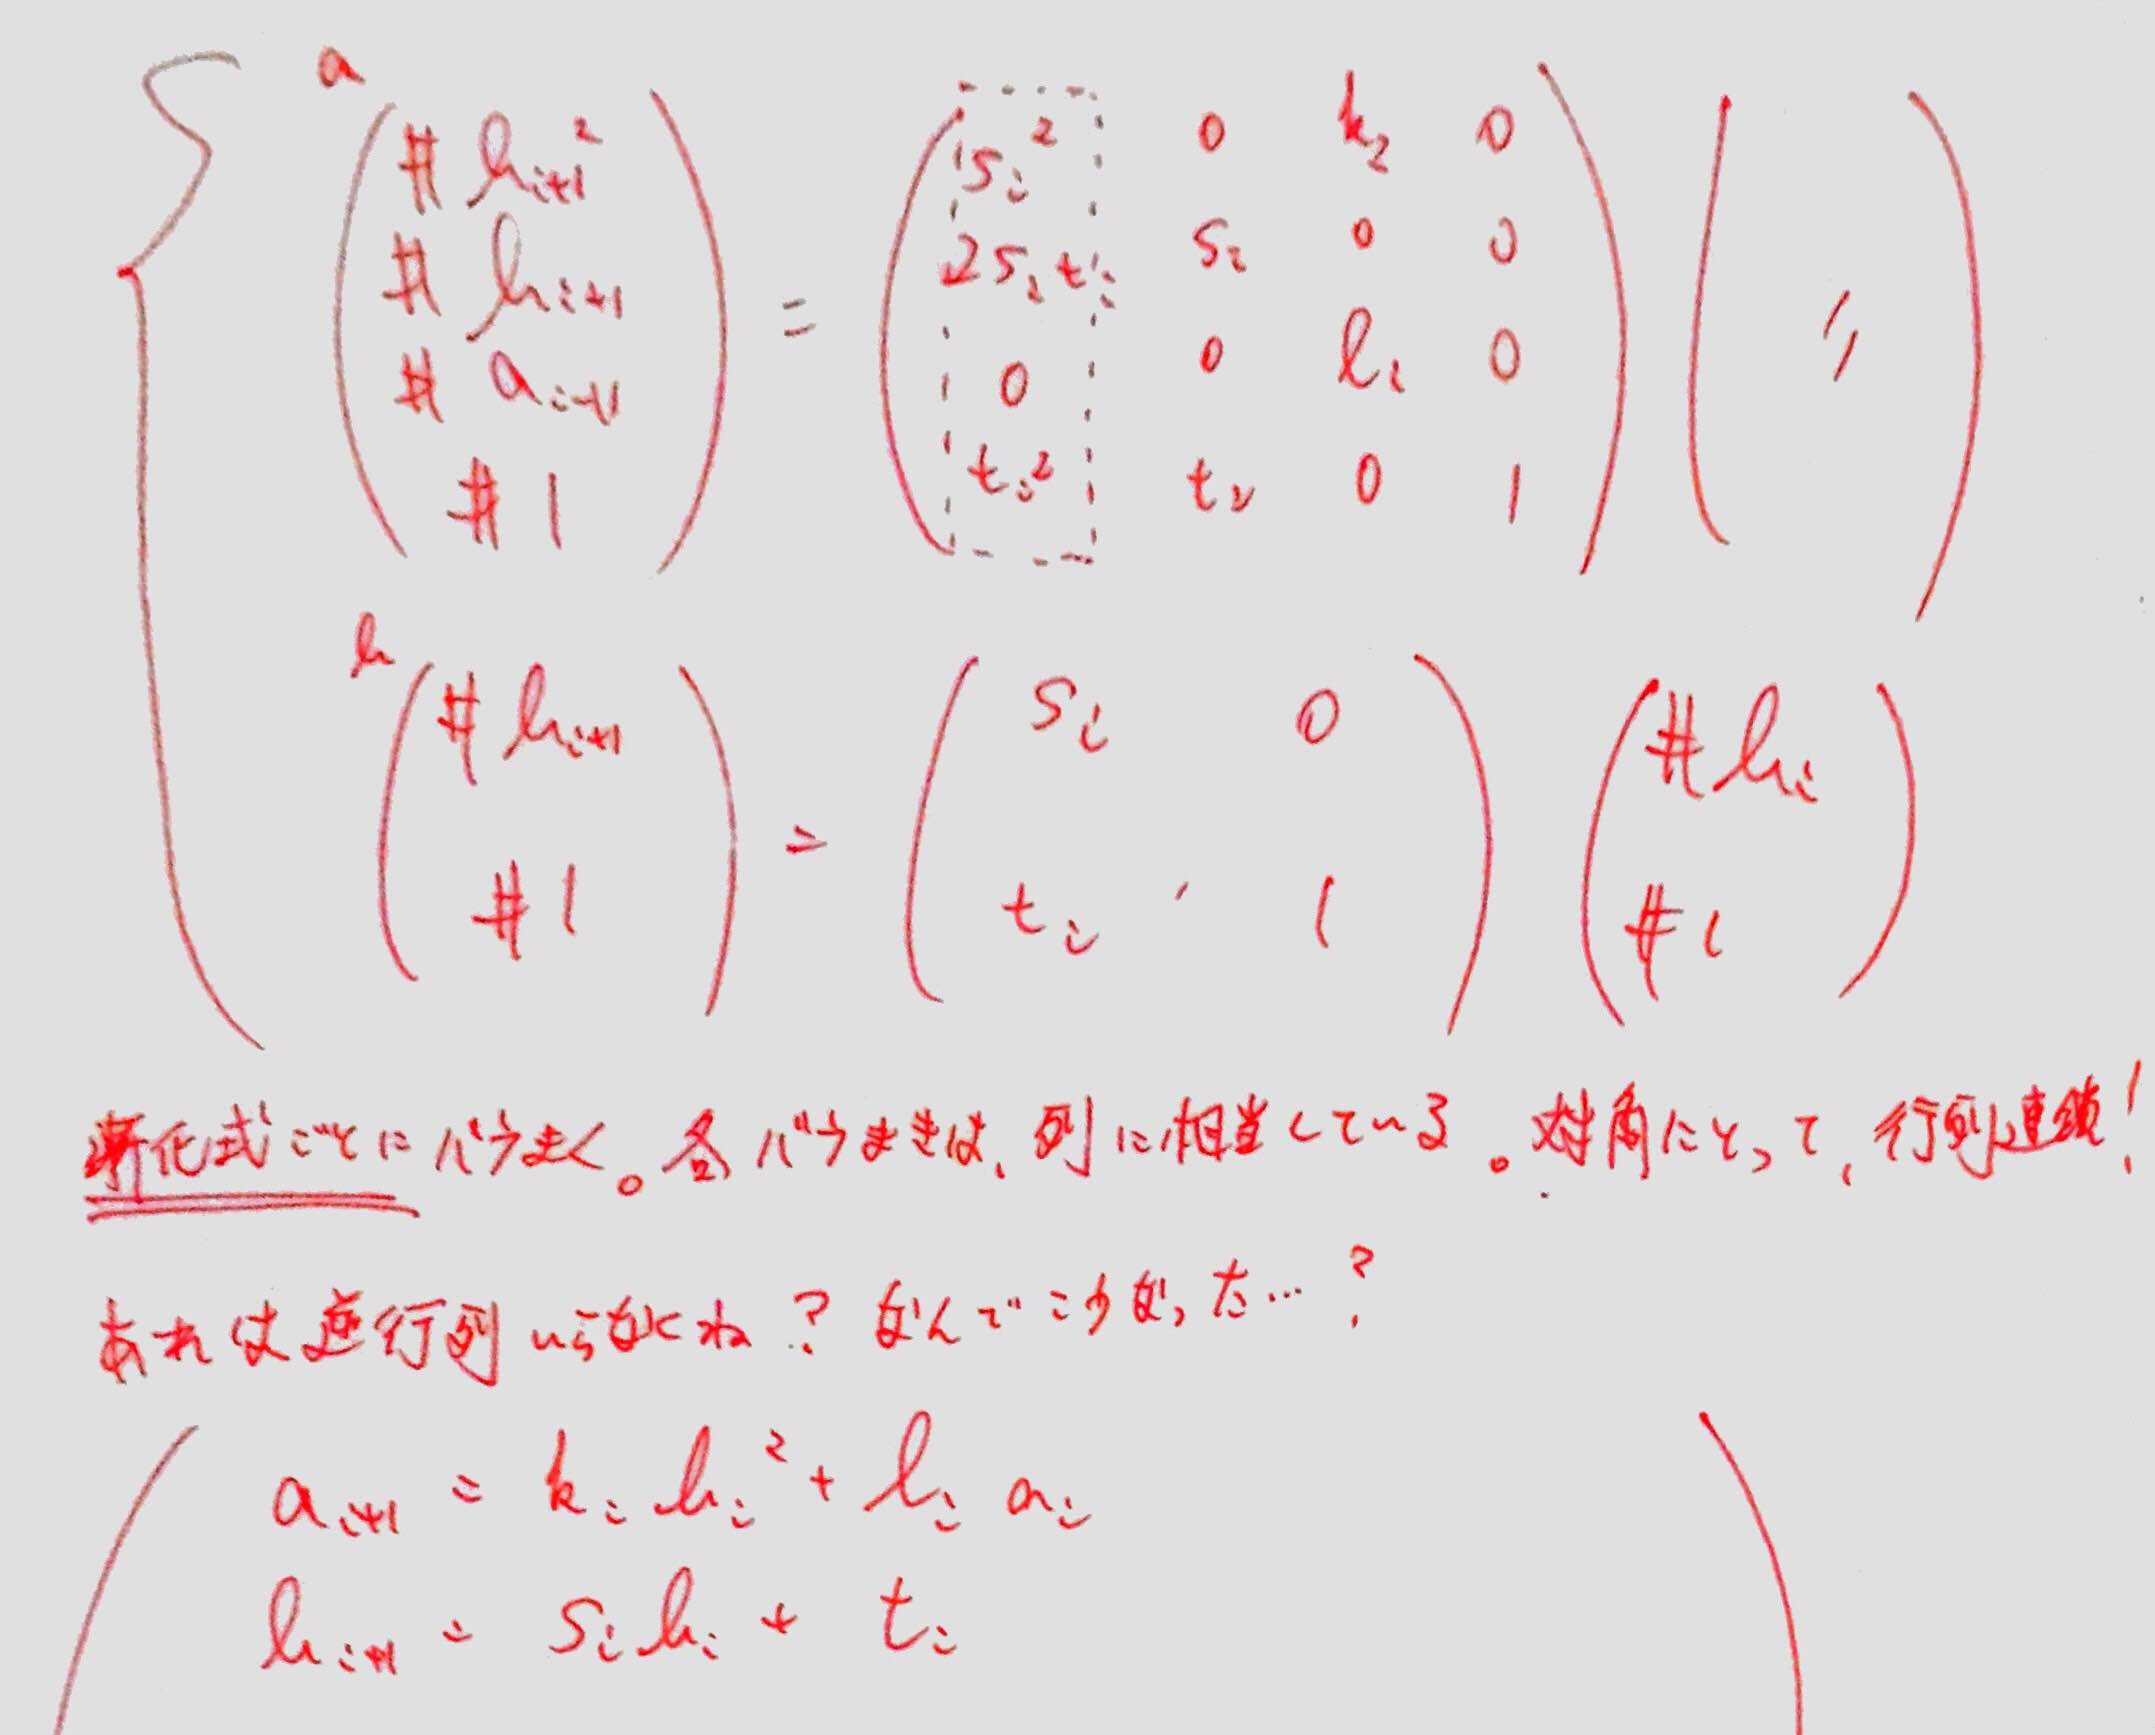 a
# h_{i+1}^2
# h_{i+1}
# a_{i+1}
# 1
=
s_i^2 0 k_2 0
2s_i t_i s_i 0 0
0 0 l_i 0
t_i^2 t_i 0 1
〃
h
# h_{i+1}
# 1
=
s_i 0
t_i 1
# h_i
# 1
漸化式ごとにバラまく。各バラまきは、列に相当している。対角にとって、行列連鎖!
あれは逆行列いらなくね?なんでこうなった…?
a_{i+1} = k_i h_i^2 + l_i a_i
h_{i+1} = s_i h_i + t_i